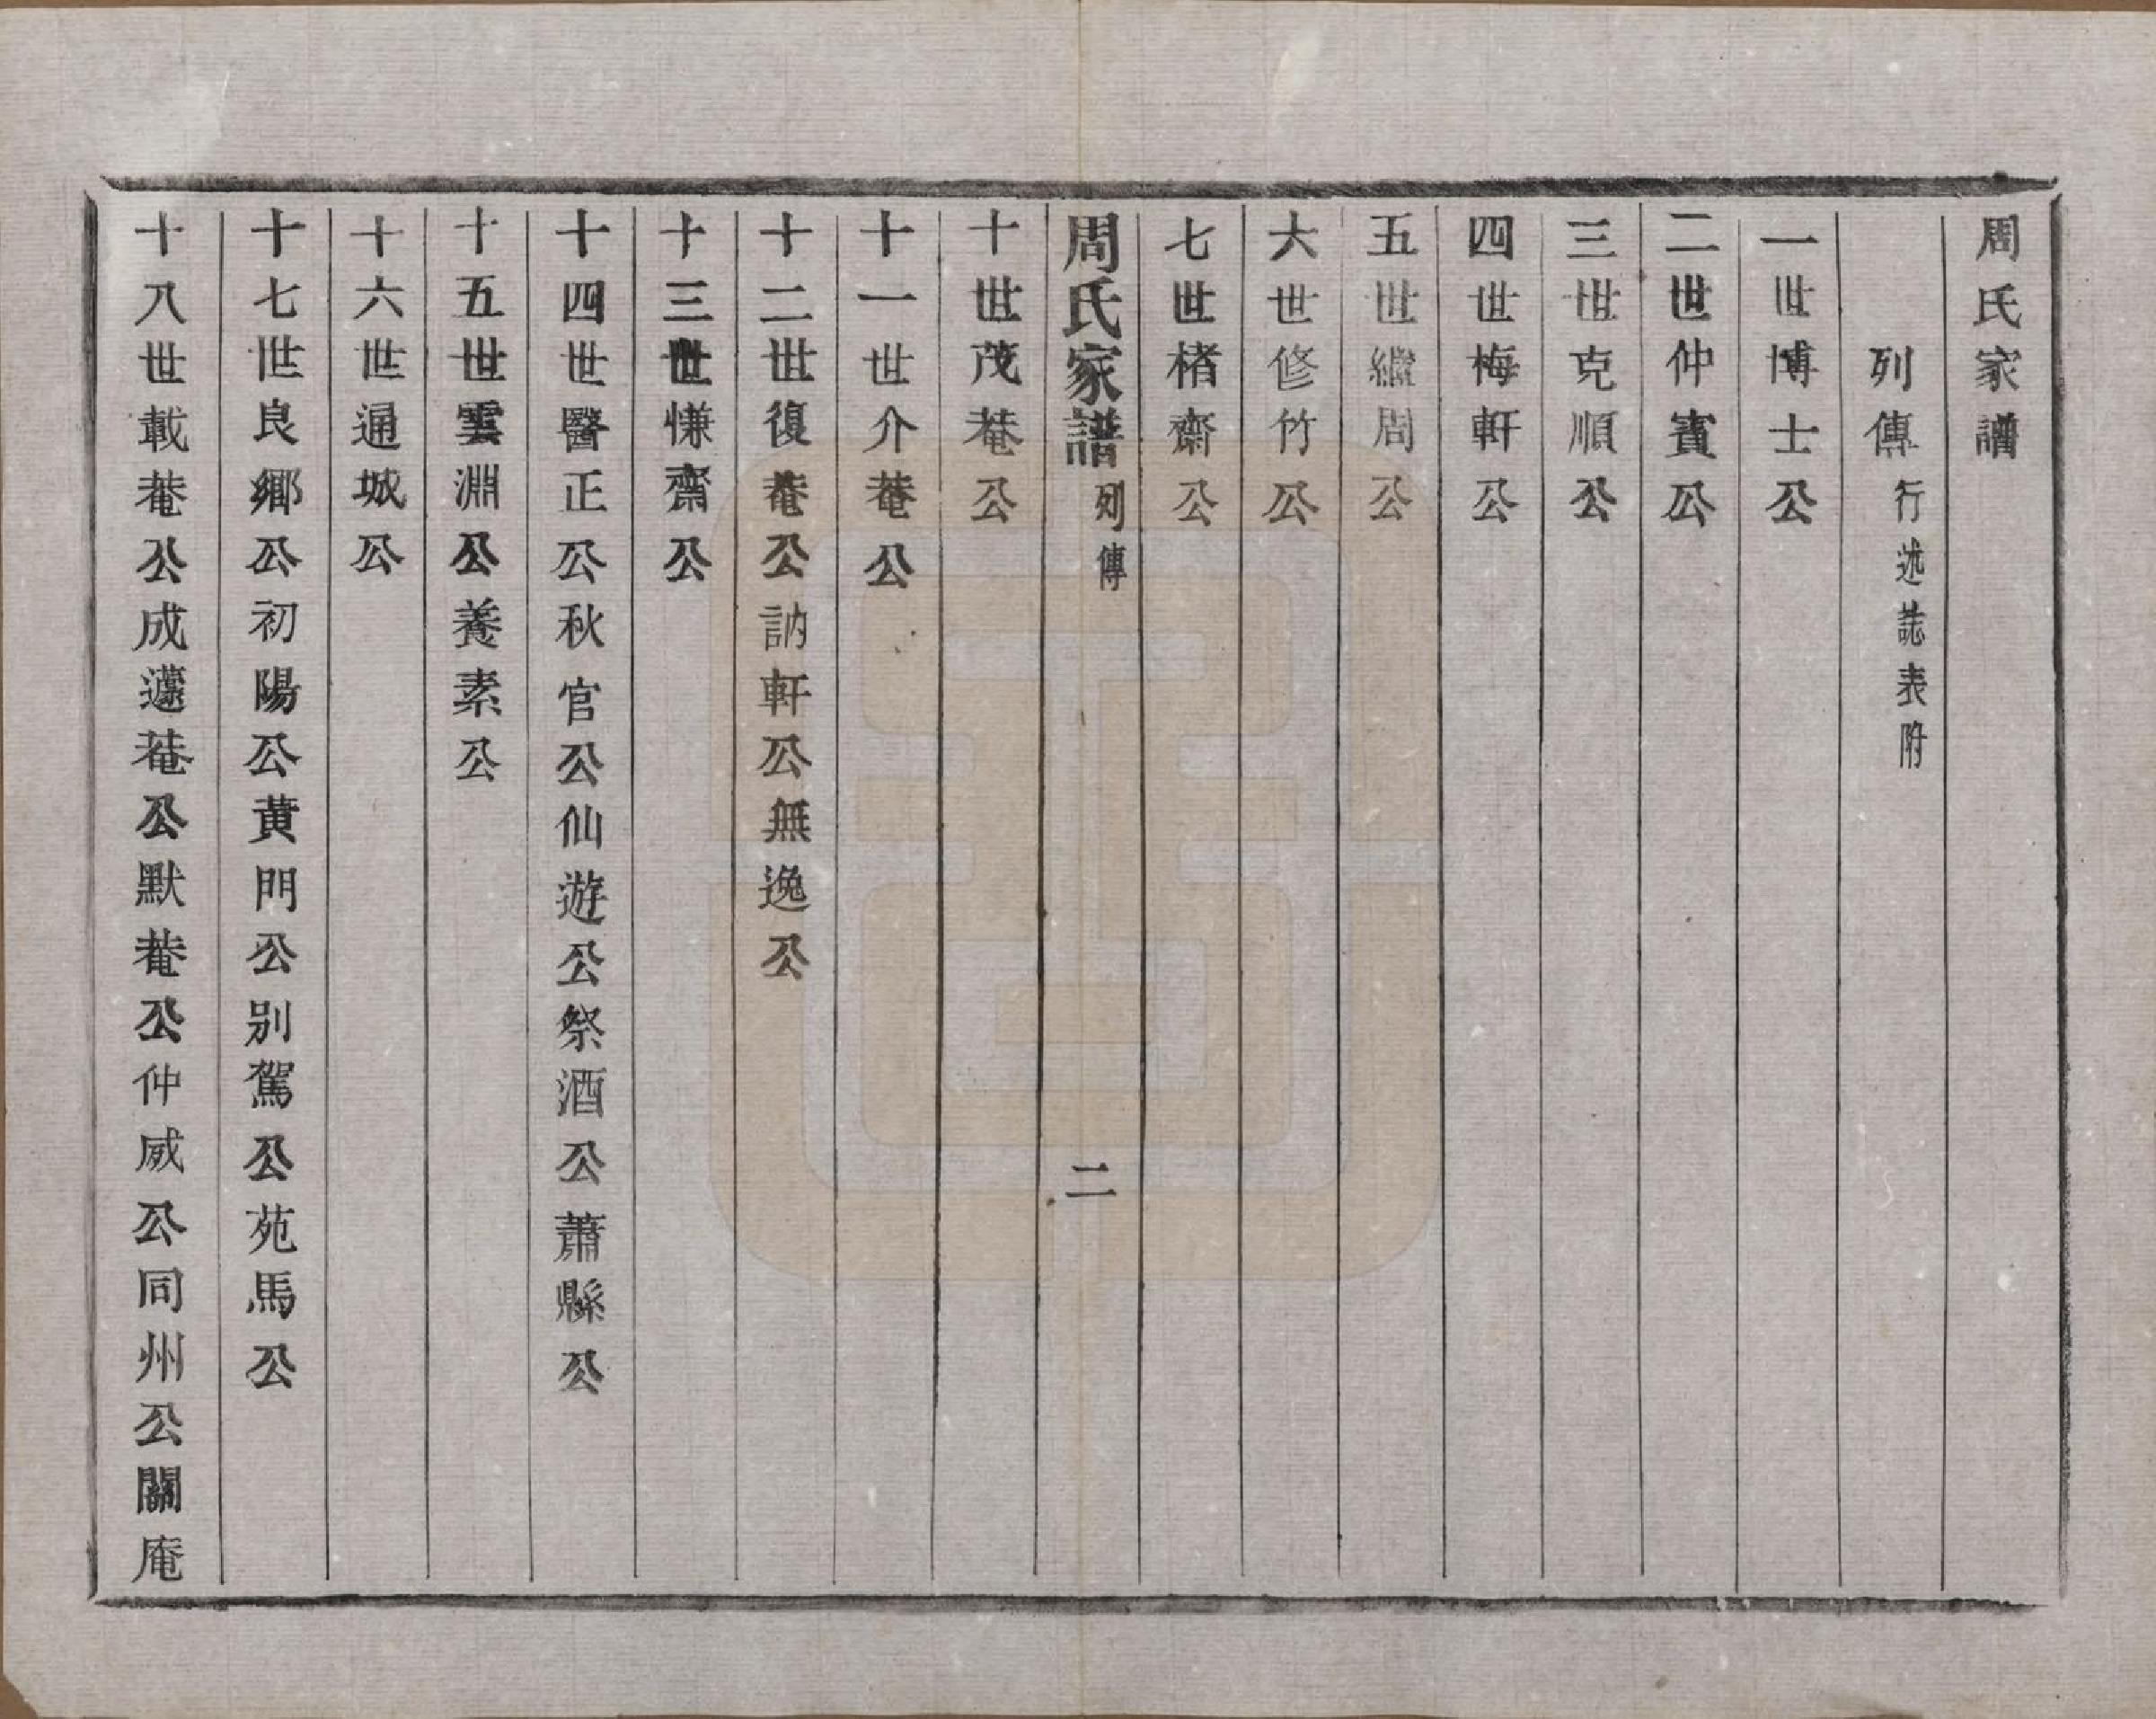 周氏家譜
列傳行述誌表附
一世博士公
二世仲賓公
三世克順公
四世梅軒公
五世繼周公
六世修竹公
七世楮齋公
周氏家譜列傳 二
十世茂菴公
十一世介菴公
十二世復菴公訥軒公無逸公
十三世慊齋公
十四世醫正公秋官公仙遊公祭酒公蕭縣公
十五世雲淵公養素公
十六世通城公
十七世良鄉公初陽公黄門公别駕公苑馬公
十八世載菴公成蘧菴公默菴公仲威公同州公關庵